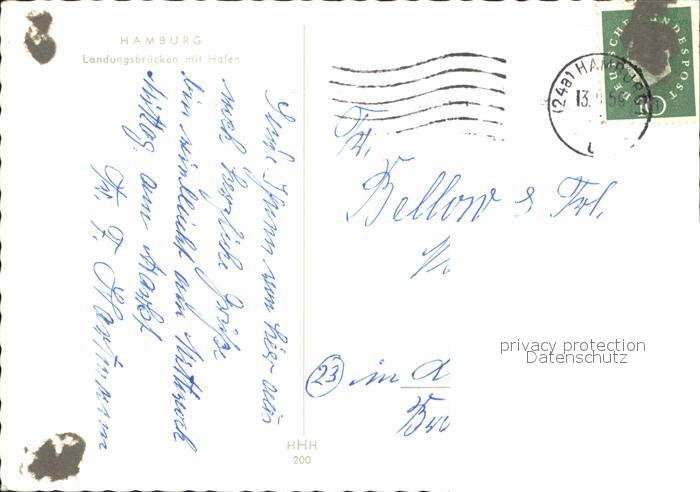 HAMBURG
Landungsbrücken mit Hafen
Sende Ihnen von hier aus
noch herzliche Grüße
bin vielleicht am Mittwoch
Mittag am
Fr. F. Hartmann
HHH
200
(24a) HAMBURG
13.
59
DEUTSCHE BUNDESPOST
10
Fr.
Bellow & Frl.
23 in
privacy protection
Datenschutz